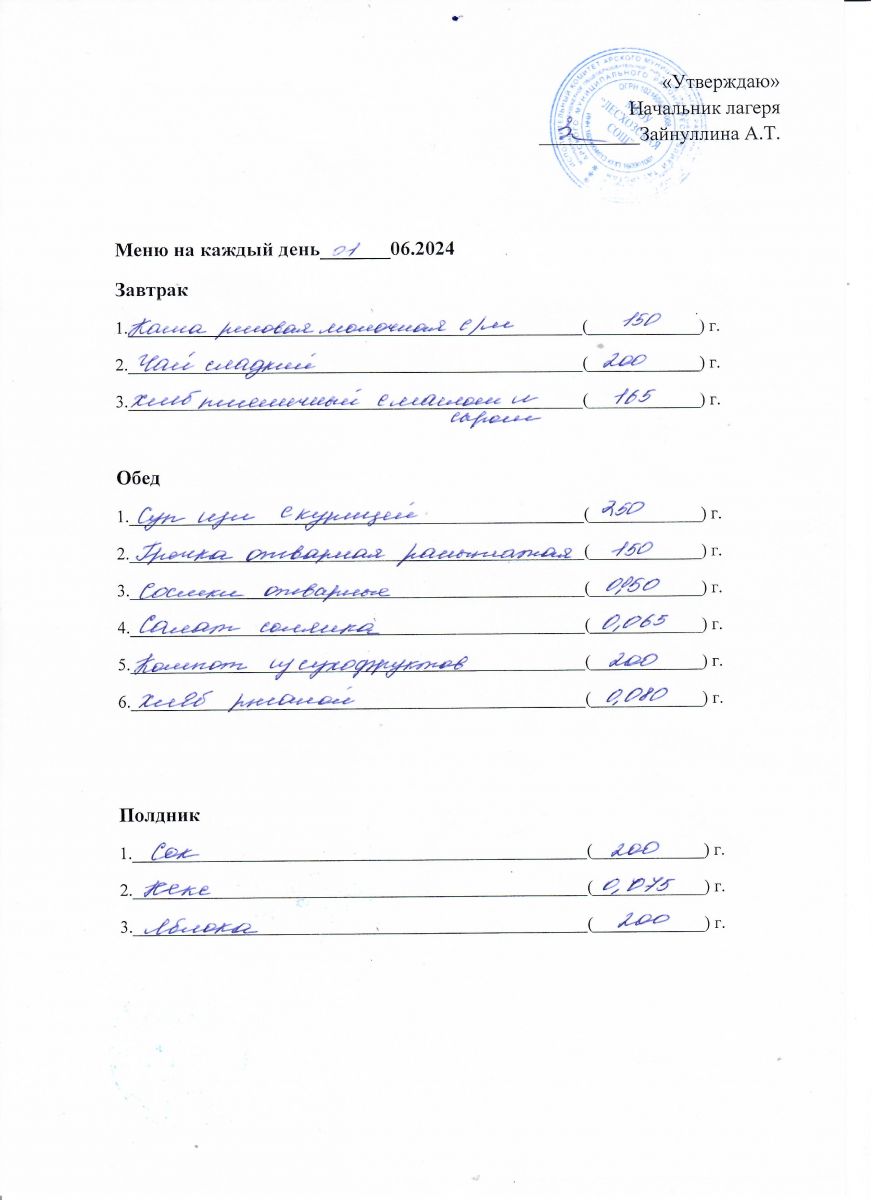 «Утверждаю»
Начальник лагеря
Зайнуллина А.Т.
ЛЕСХОЗСКАЯ
СОШ
Меню на каждый день 01 06.2024
Завтрак
1. Каша рисовая молочная с/м (150) г.
2. Чай сладкий (200) г.
3. Хлеб пшеничный с маслом и (165) г.
сыром
Обед
1. Суп щи с курицей (250) г.
2. Гречка отварная рассыпчатая (150) г.
3. Сосиски отварные () г.
4. Салат солянка (0,065) г.
5. Компот из сухофруктов (200) г.
6. Хлеб ржаной (0,080) г.
Полдник
1. Сок (200) г.
2. Кекс (0,075) г.
3. Яблока (200) г.